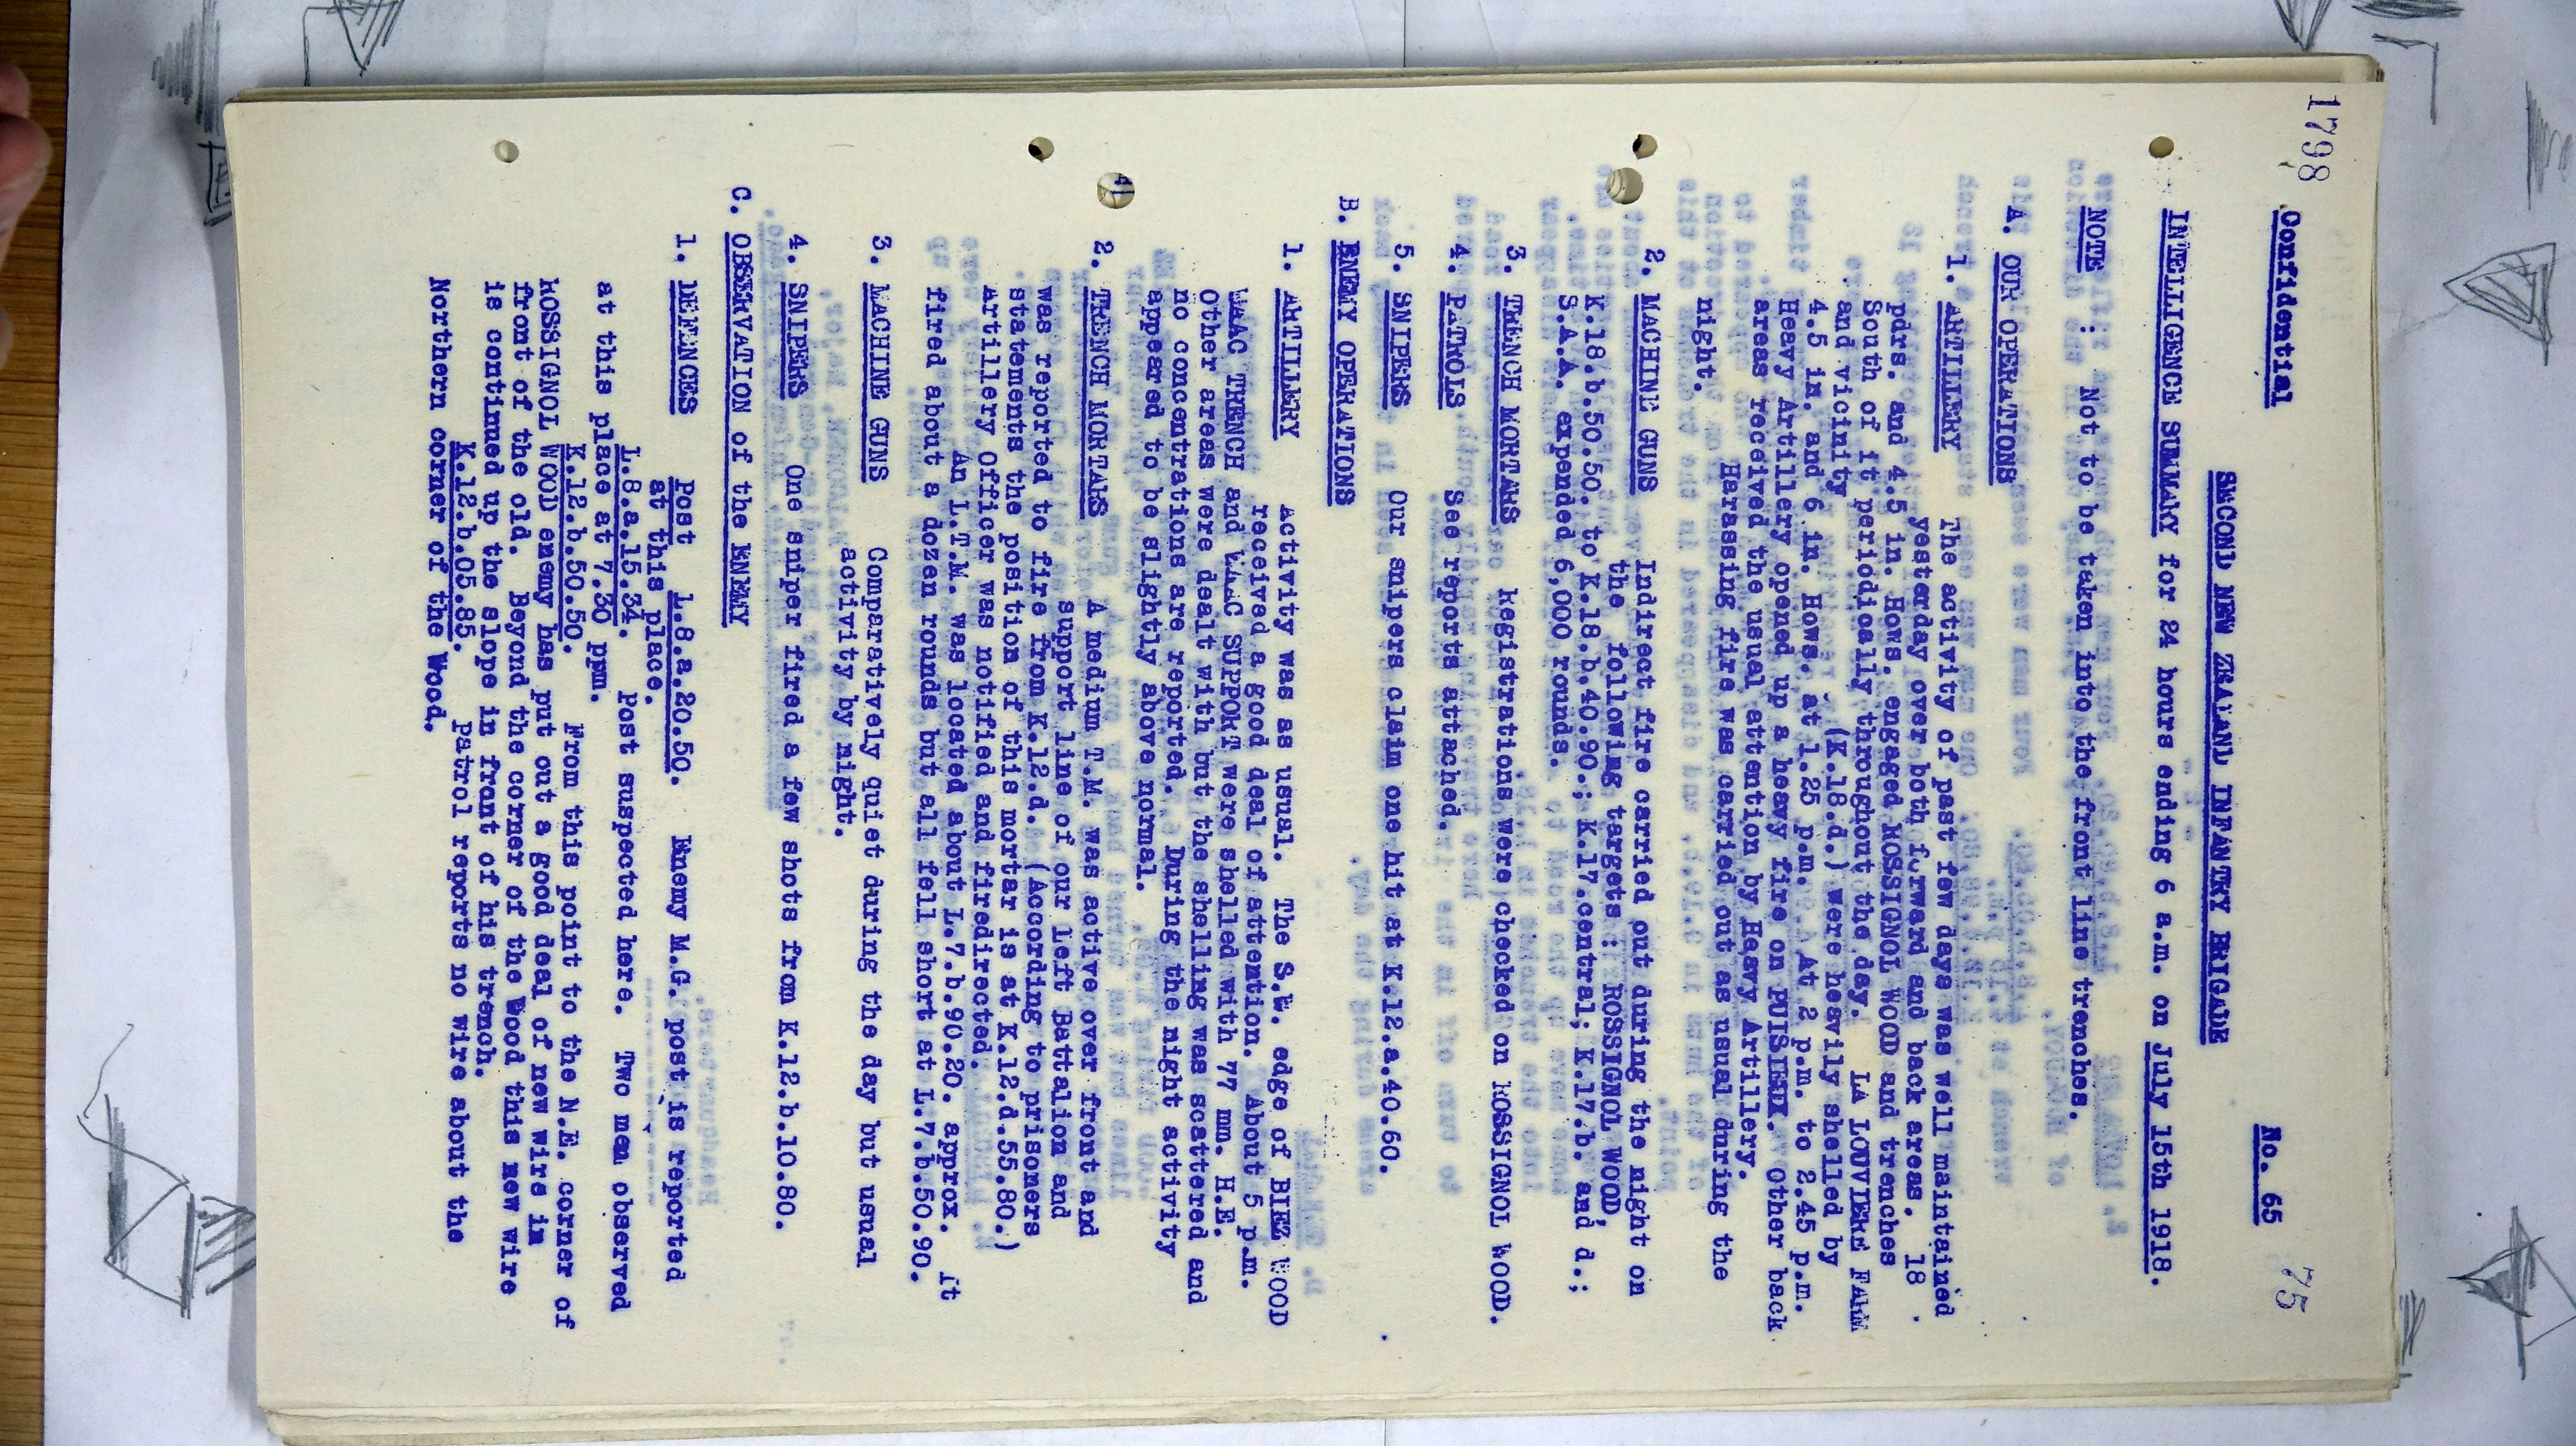 1798
75
Confidential
No. 65
SECOND NEW ZEALAND INFANTRY BRIGADE
INTELLIGENCE SUMMARY for 24 hours ending 6 a.m. on July 15th 1918.
NOTE : Not to be taken into the front line trenches.
A. OUR OPERATIONS
1. ARTILLERY The activity of past few days was well maintained
yesterday over both forward and back areas. 18
pdrs. and 4.5 in. Hows. engaged ROSSIGNOL WOOD and trenches
South of it periodically throughout the day. LA LOUVIERE FARM
and vicinity (K.18.d.) were heavily shelled by
4.5 in. and 6 in. Hows. at 1.25 p.m. At 2 p.m. to 2.45 p.m.
Heavy Artillery opened up a heavy fire on PUISIEUX. Other back
areas received the usual attention by Heavy Artillery.
Harassing fire was carried out as usual during the
night.
2. MACHINE GUNS Indirect fire carried out during the night on
the following targets : ROSSIGNOL WOOD,
K.18.b.50.50. to K.18.b.40.90.; K.17.central; K.17.b. and d.;
S.A.A. expended 6,000 rounds.
3. TRENCH MORTARS Registrations were checked on ROSSIGNOL WOOD.
4. PATROLS See reports attached.
5. SNIPERS Our snipers claim one hit at K.12.a.40.60.
B. ENEMY OPERATIONS
1. ARTILLERY Activity was as usual. The S.E. edge of BIEZ WOOD
received a good deal of attention. About 5 p.m.
WAAC TRENCH and WAAC SUPPORT were shelled with 77 mm. H.E.
other areas were dealt with but the shelling was scattered and
no concentrations are reported. During the night activity
appeared to be slightly above normal.
2. TRENCH MORTARS A medium T.M. was active over front and
support line of our Left Battalion and
was reported to fire from K.12.d. (According to prisoners
statements the position of this mortar is at K.12.d.55.80.)
Artillery Officer was notified and firedirected.
An L.T.M. was located about L.7.b.90.20. approx. It
fired about a dozen rounds but all fell short at L.7.b.50.90.
3. MACHINE GUNS Comparatively quiet during the day but usual
activity by night.
4. SNIPERS One sniper fired a few shots from K.12.b.10.80.
C. OBSERVATION of the ENEMY
1. DEFENCES Post L.8.a.20.50. Enemy M.G. post is reported
at this place.
L.8.a.15.34. Post suspected here. Two men observed
at this place at 7.30 ppm.
K.12.b.50.50. From this point to the N.E. corner of
ROSSIGNOL WOOD enemy has put out a good deal of new wire in
front of the old. Beyond the corner of the Wood this new wire
is continued up the slope in front of his trench.
K.12.b.05.85. Patrol reports no wire about the
Northern corner of the Wood.